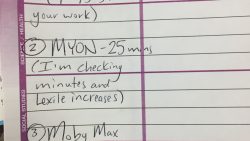 your work)
② MYON - 25 mins
(I'm checking
minutes and
Lexile increases)
③ Moby Max
SCIENCE / HEALTH
SOCIAL STUDIES